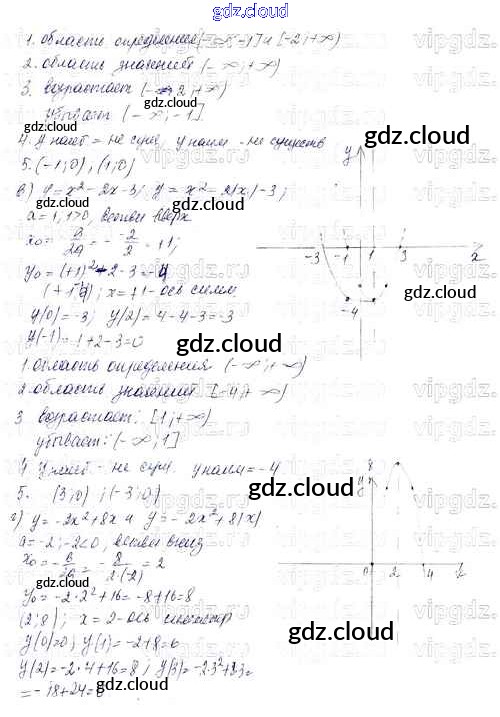 gdz.cloud
1. область определения (-∞; -1] и [-2; +∞)
2. область значений (-∞; +∞)
3. возрастает (-2; +∞)
убывает (-∞; -1]
4. y наиб = не сущ, y наим - не существ
5. (-1; 0), (1; 0)
в) y = x² - 2x - 3; y = x² - 2|x| - 3;
a = 1, 1>0, ветви вверх
x₀ = -в/2a = - -2/2 = +1;
y₀ = (+1)² - 2 - 3 = -4
(+1; 4); x = +1 - ось симм
y(0) = -3; y(2) = 4-4-3 = -3
y(-1) = 1+2-3=0
1. Область определения (-∞; +∞)
2. область значений [-4; +∞)
3 возрастает: [1; +∞)
убывает: (-∞; 1]
4 y наиб - не сущ. y наим = -4
5. (3; 0); (-3; 0)
г) y = -2x² + 8x и y = -2x² + 8|x|
a = -2; -2<0, ветви вниз
x₀ = -в/2a = - 8/2·(-2) = 2
y₀ = -2·2² + 16 = -8+16=8
(2; 8); x = 2 - ось симметр
y(0)=0; y(1) = -2+8=6
y(2) = -2·4+16=8; y(3) = -2·3²+8·3=
= -18+24=6
y
-3 -1 1 3 x
-4
y
8
0 2 4 x
gdz.cloud
gdz.cloud
gdz.cloud
gdz.cloud
gdz.cloud
gdz.cloud
gdz.cloud
gdz.cloud
gdz.cloud
gdz.cloud
gdz.cloud
gdz.cloud
gdz.cloud